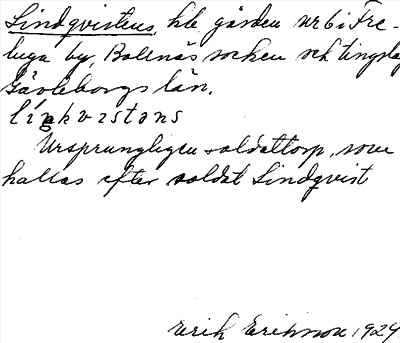 Lindqvistens, kle gården nr 6 i Fre-
luga by, Bollnäs socken och tingslag
Gävleborgs län.
liŋkvistəns
Ursprungligen soldattorp, som
kallas efter soldat Lindqvist
Erik Erikson 1924.